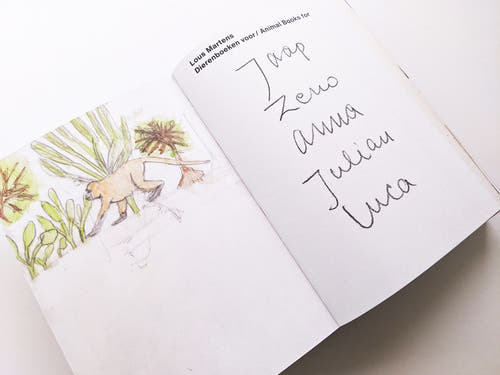 Lous Martens
Dierenboeken voor / Animal Books for
Jaap
Zeno
anna
Julian
Luca